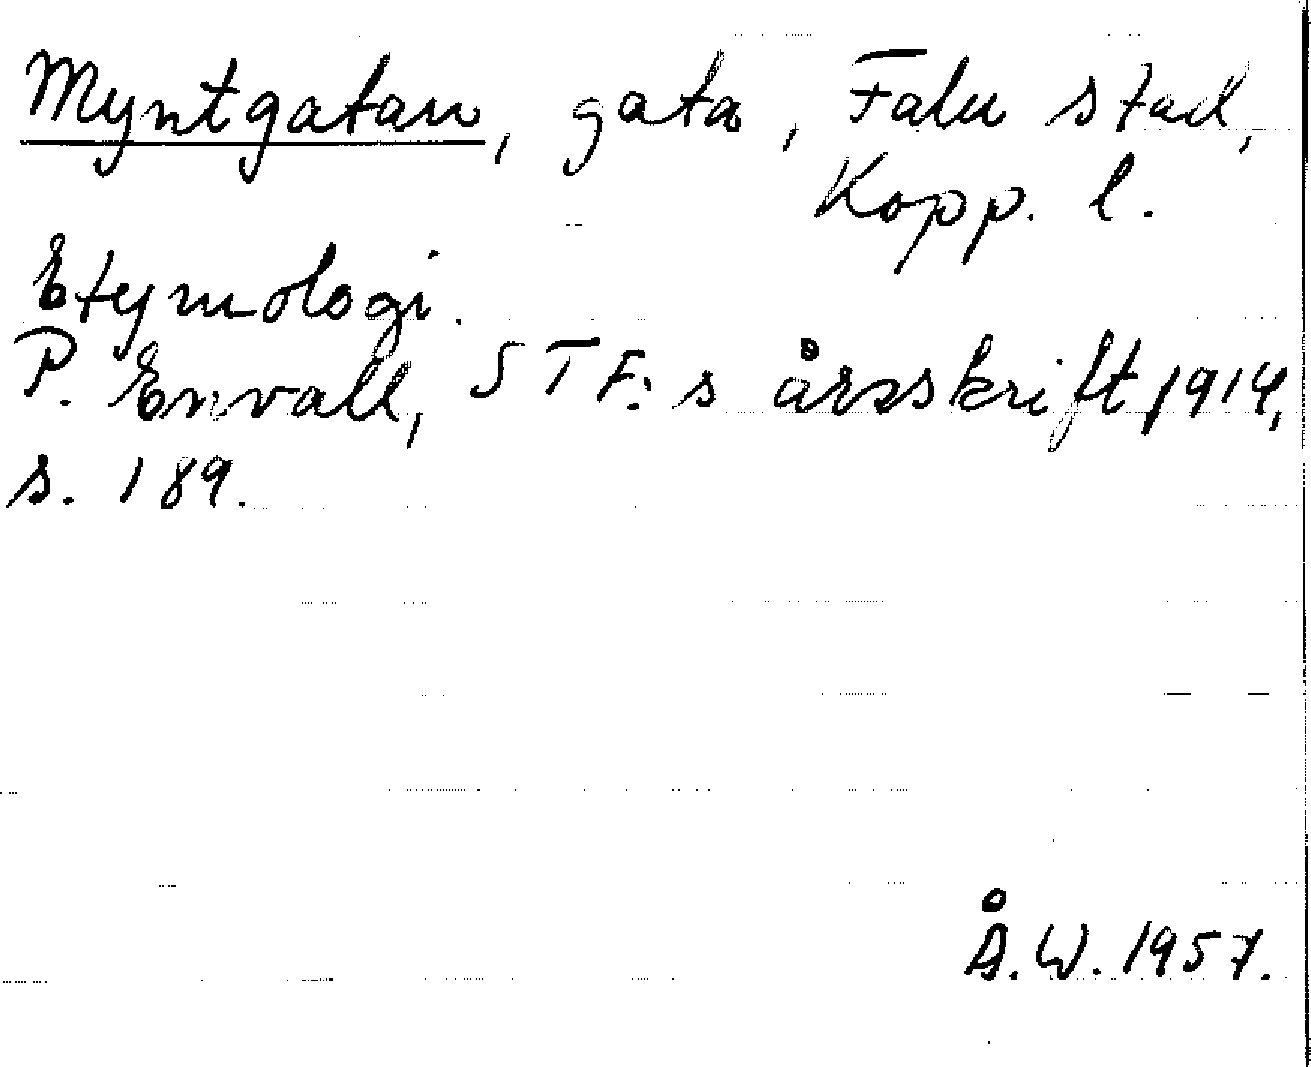 Myntgatan, gata, Falu stad,
Kopp. l.
Etymologi.
P. Envall, STF:s årsskrift 1914,
s. 189.
Å.W. 1957.